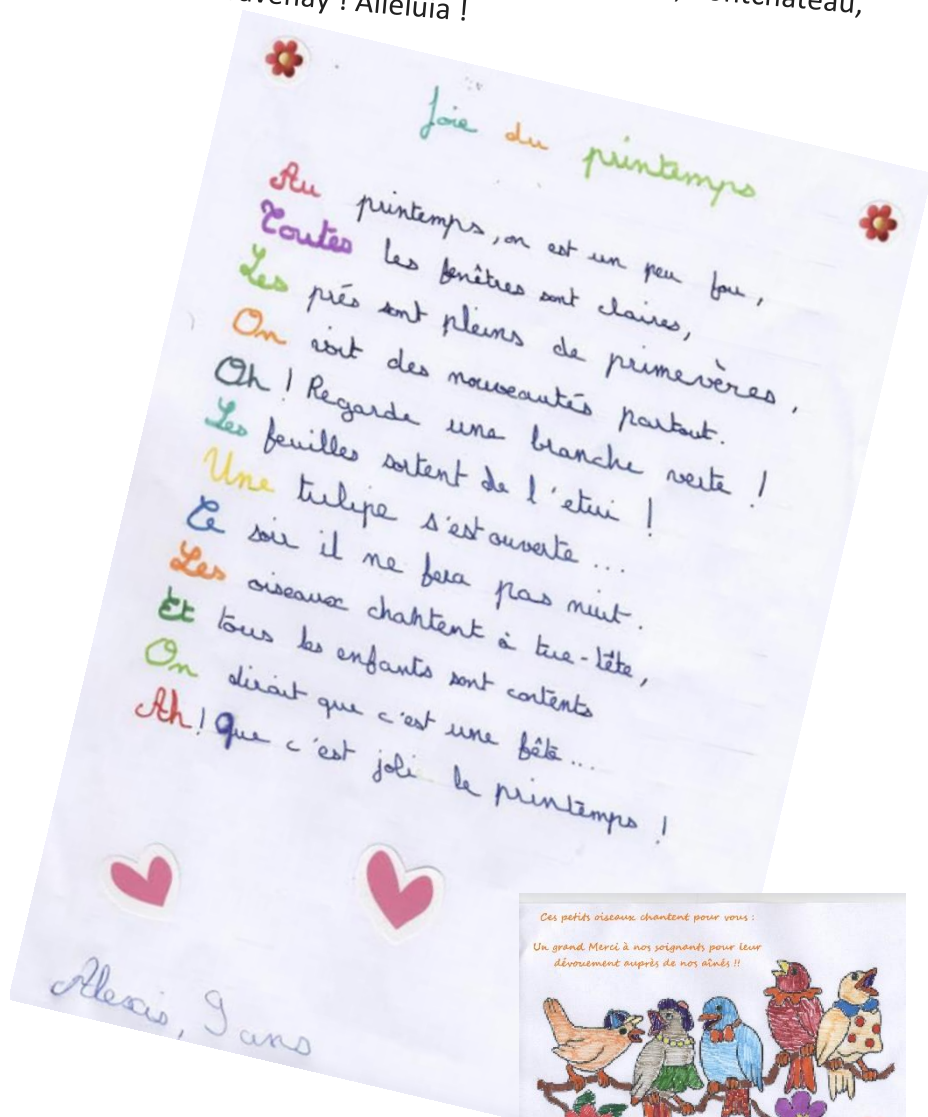 ! Alleluia !
Joie du printemps
Au printemps, on est un peu fou,
Toutes les fenêtres sont claires,
Les prés sont pleins de primevères,
On voit des nouveautés partout.
Oh ! Regarde une branche verte !
Les feuilles sortent de l'etui !
Une tulipe s'est ouverte...
Ce soir il ne fera pas nuit.
Les oiseaux chantent à tue-tête,
Et tous les enfants sont contents
On dirait que c'est une fête...
Ah ! Que c'est joli le printemps !
Alexis, 9 ans
Ces petits oiseaux chantent pour vous :
Un grand Merci à nos soignants pour leur
dévouement auprès de nos aînés !!